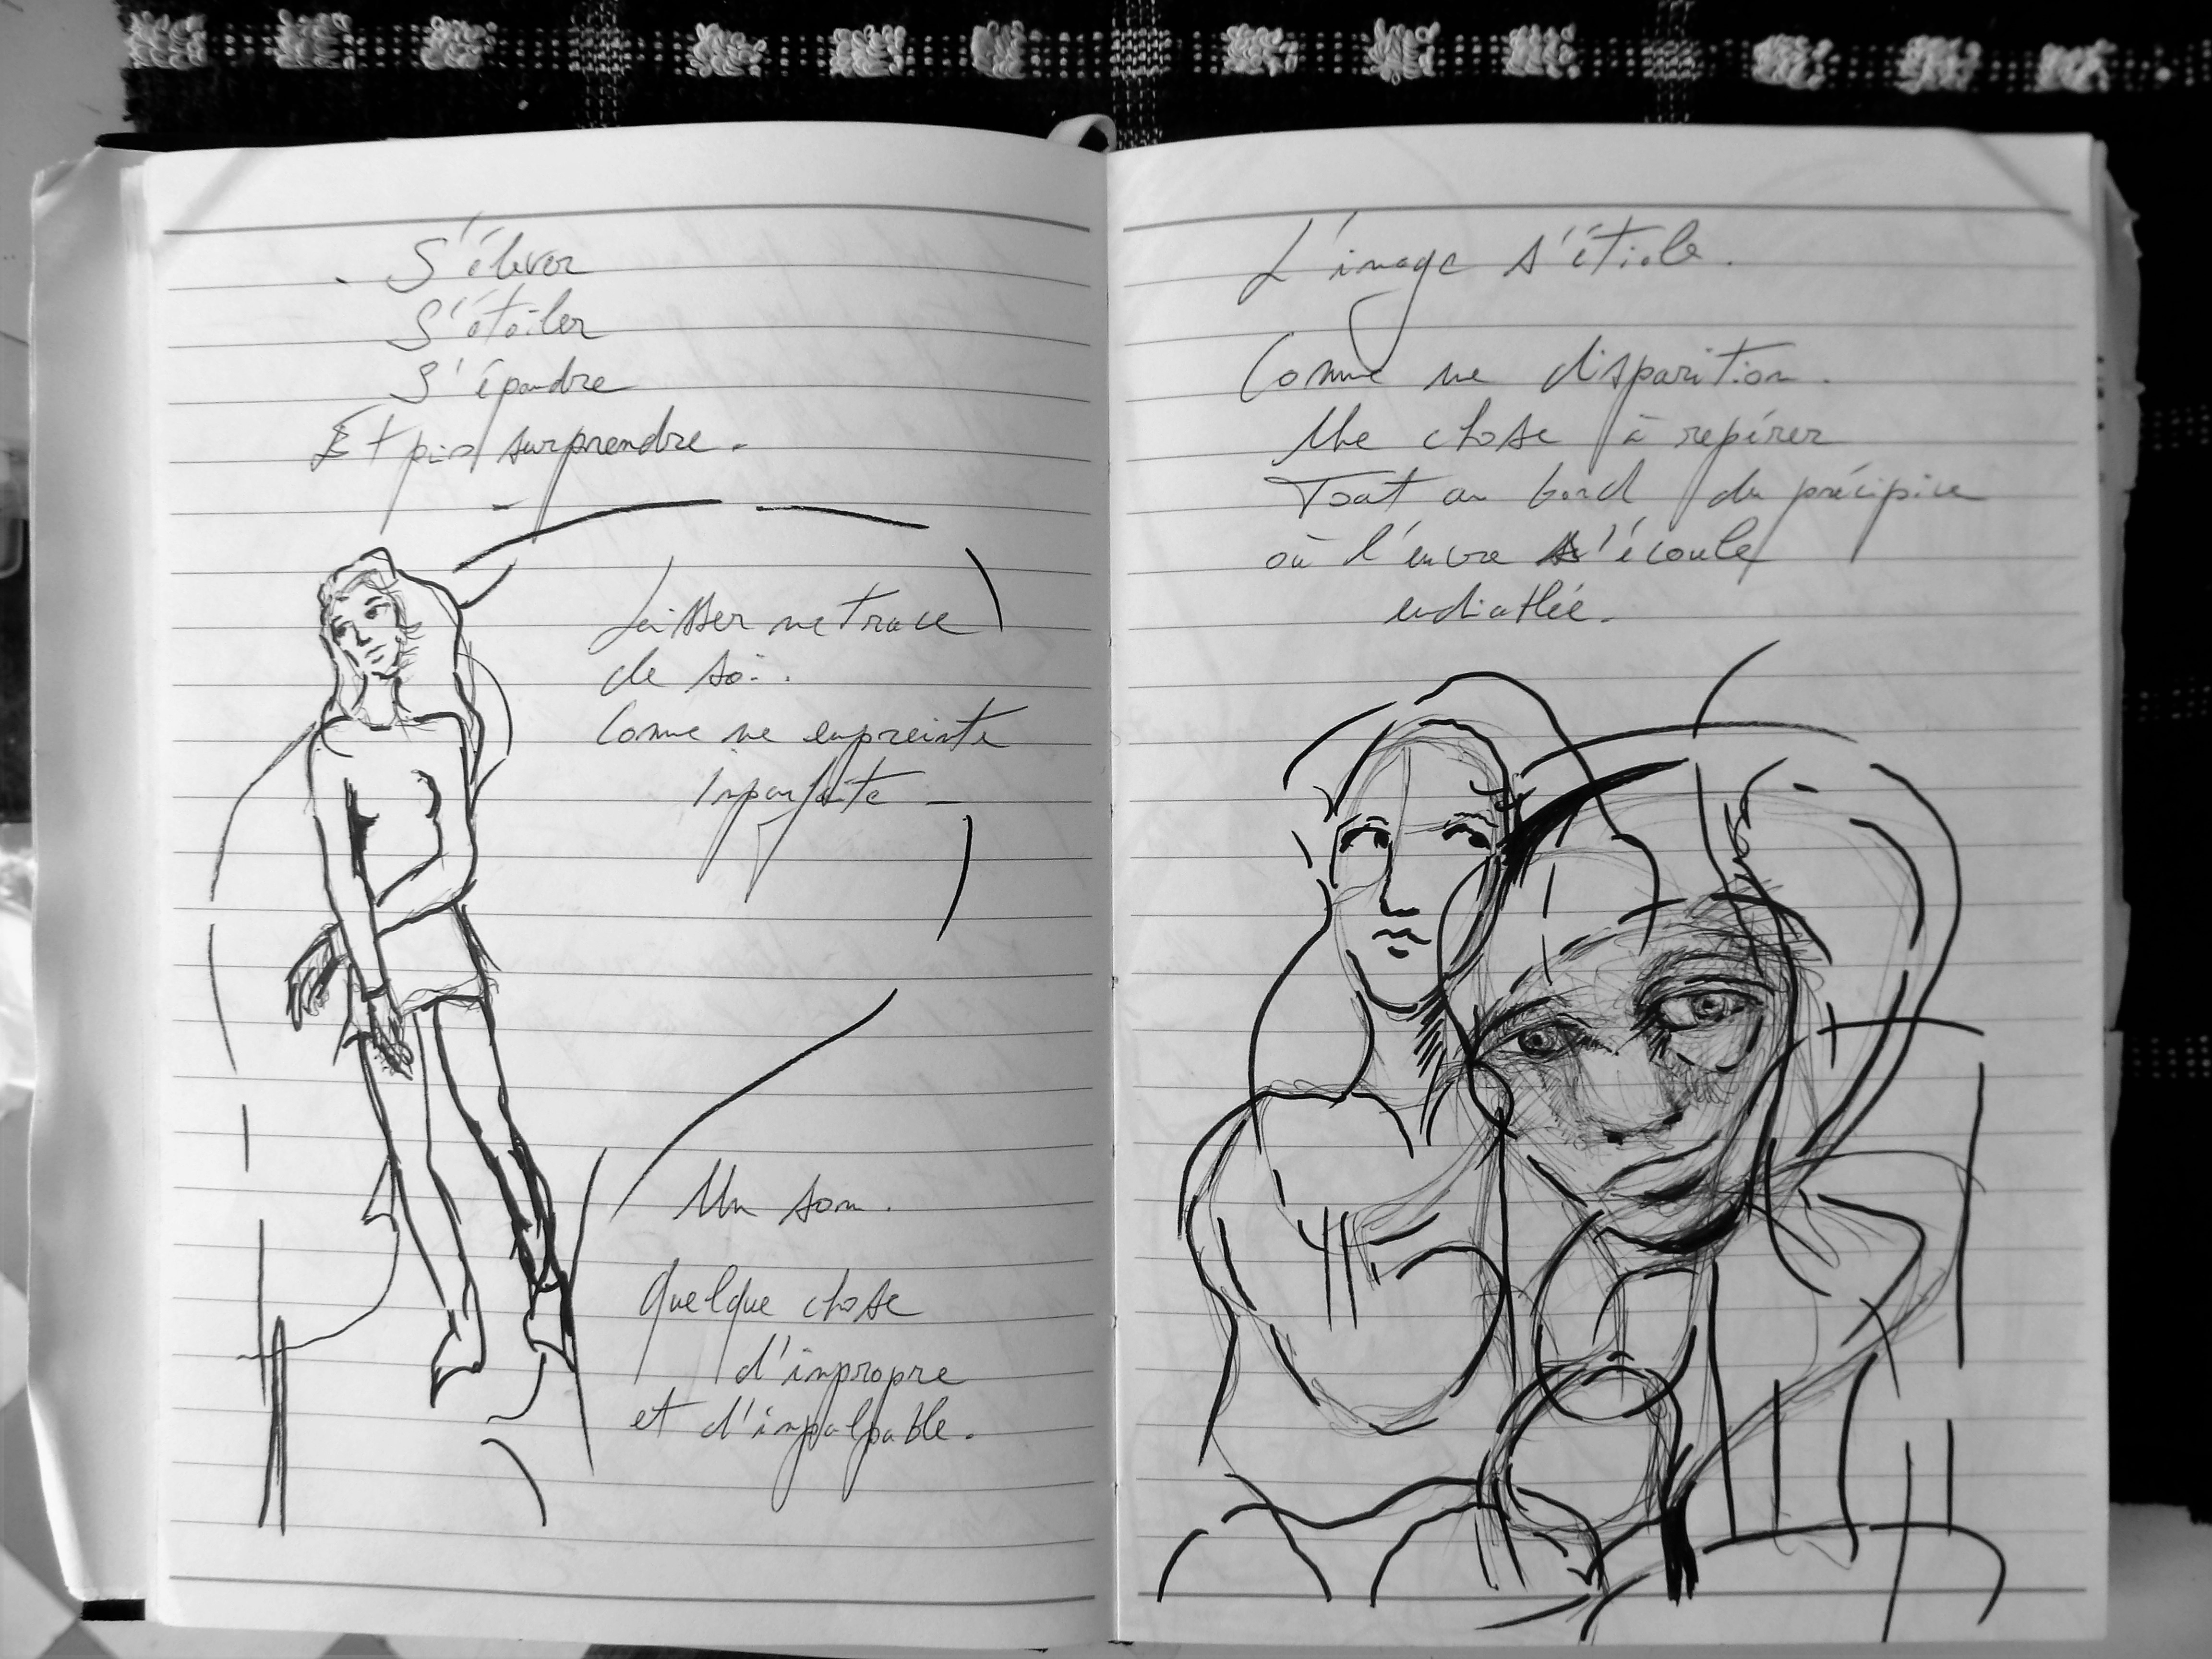 S'élever
S'étoiler
S'épandre
Et puis surprendre.
Laisser une trace
de soi.
Comme une empreinte
imparfaite
Un son.
Quelque chose
d'impropre
et d'impalpable.
L'image s'étiole.
Comme une disparition.
Une chose à repérer
Tout au bord du précipice
où l'encre s'écoule
endiablée.